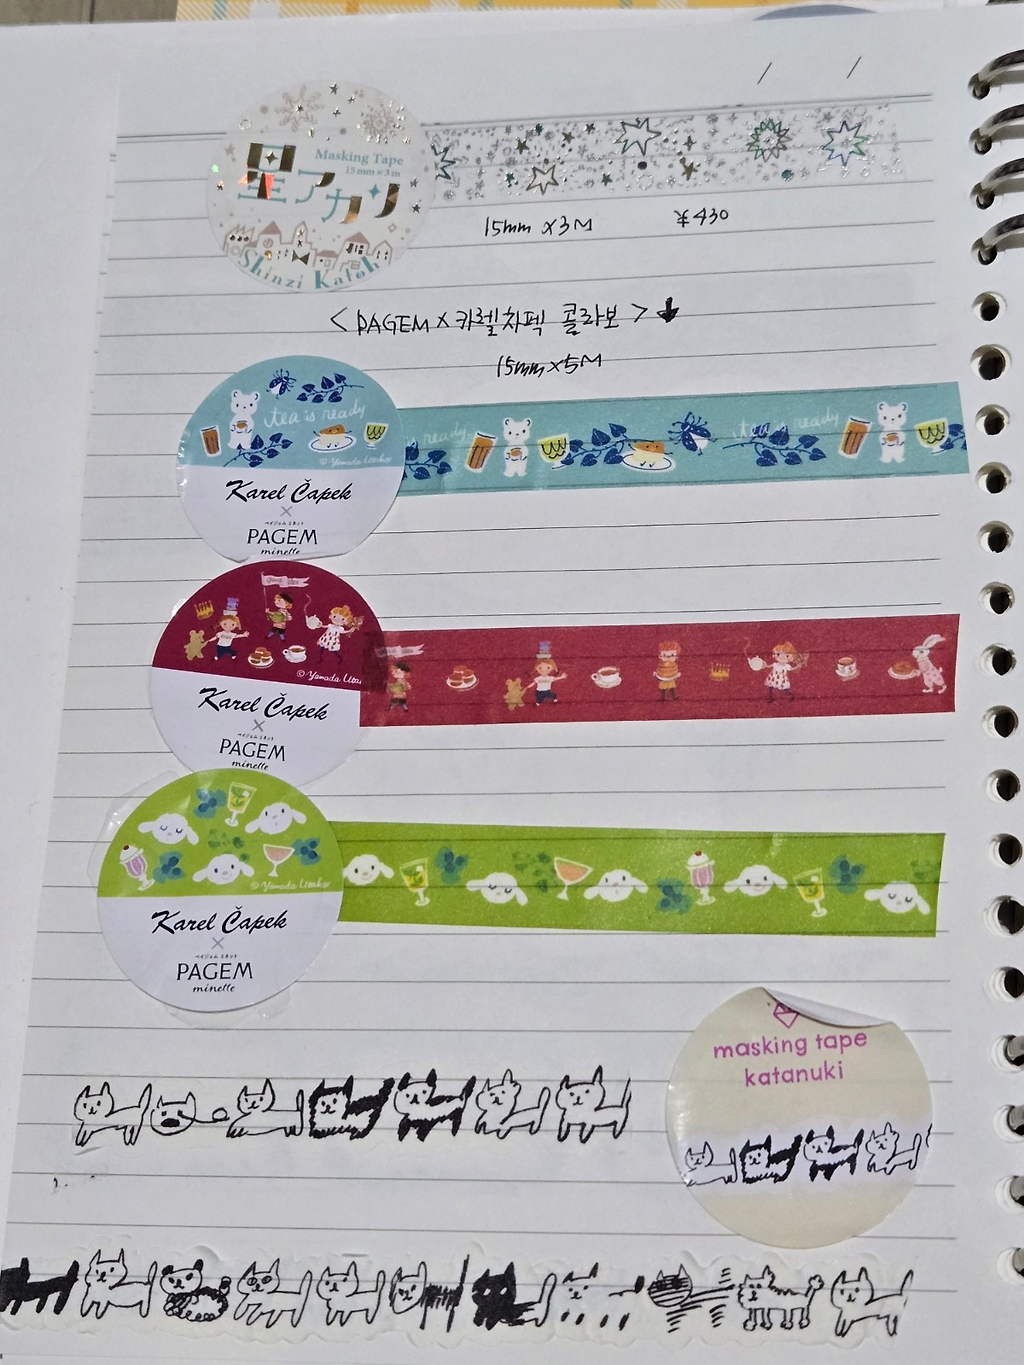 Masking Tape
15mm×3m
星アカリ
Shinzi Katoh
15mm X3M ¥430
<PAGEM X 카렐차펙 콜라보> ↓
15mm X5M
tea is ready
© Yamada Utako
Karel Čapek
×
ペイジェム ミネット
PAGEM
minette
tea is ready
© Yamada Utako
Karel Čapek
×
ペイジェム ミネット
PAGEM
minette
© Yamada Utako
Karel Čapek
×
ペイジェム ミネット
PAGEM
minette
masking tape
katanuki